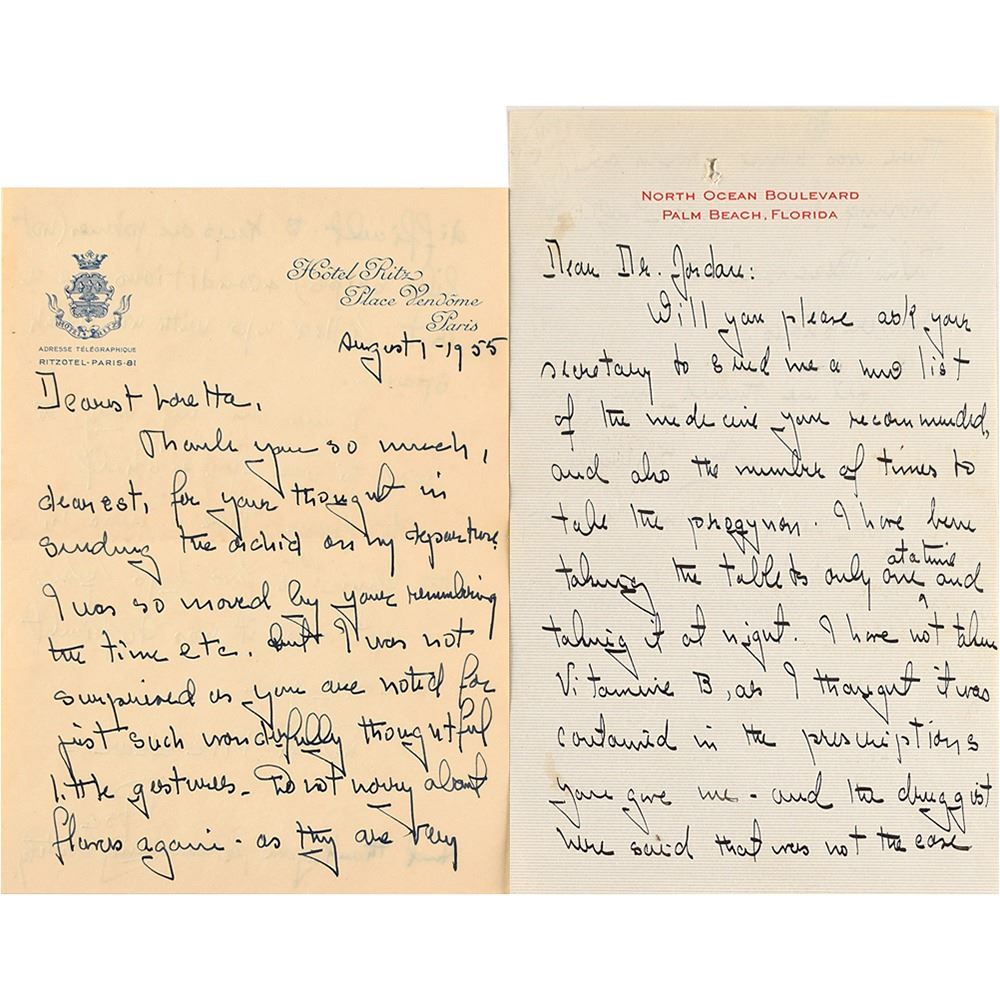 HOTEL RITZ
ADRESSE TÉLÉGRAPHIQUE
RITZOTEL-PARIS-81
Hôtel Ritz
Place Vendôme
Paris
August 1-1955
Dearest Loretta,
Thank you so much,
dearest, for your thought in
sending the orchid on my departure.
I was so moved by your remembering
the time etc. but I was not
surprised as you are noted for
just such wonderfully thoughtful
little gestures. Do not worry about
flowers again - as they are very
NORTH OCEAN BOULEVARD
PALM BEACH, FLORIDA
Dear Dr. Jordan:
Will you please ask your
secretary to send me a new list
of the medecine you recommended,
and also the number of times to
take the progynon. I have been
taking the tablets only one at a time and
taking it at night. I have not taken
Vitamine B, as I thought it was
contained in the prescriptions
you gave me - and the druggist
here said that was not the case